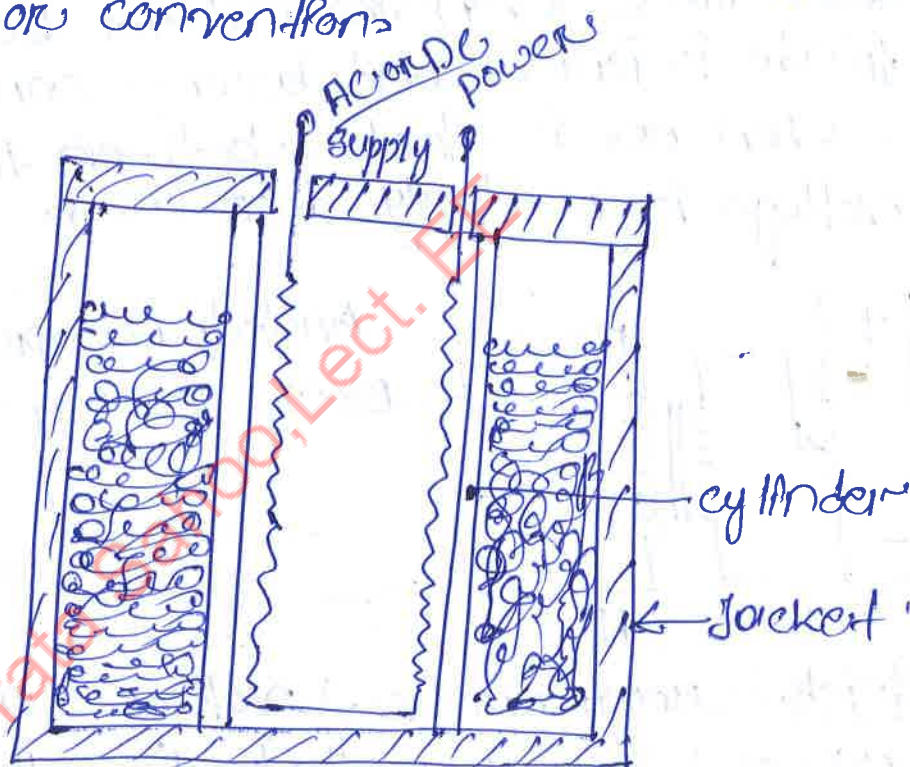 or convention
AC or DC
power
supply
cylinder
Jacket
rata Sahoo, Lect. EE